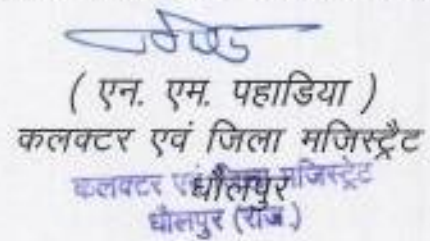 ( एन. एम. पहाडिया )
कलक्टर एवं जिला मजिस्ट्रैट
धौलपुर
कलक्टर एवं जिला मजिस्ट्रेट
धौलपुर (राज.)